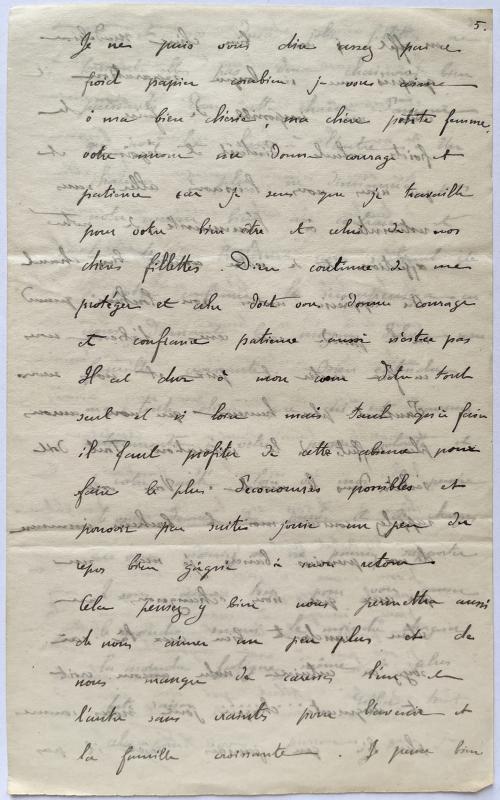 5.
Je ne puis vous dire assez par ce
froid papier combien je vous aime
ô ma bien chérie, ma chère petite femme,
votre amour me donne courage et
patience car je sens que je travaille
pour votre bien être et celui de nos
chères fillettes. Dieu continue de me
protéger et cela doit vous donner courage
et confiance patience aussi n'est ce pas
Il est dur à mon cœur d'être tout
seul et si loin mais tant qu'à faire
il faut profiter de cette absence pour
faire le plus d'économies possibles et
pouvoir par suite jouir un peu du
repos bien gagné à mon retour
Cela pensez y bien nous permettra aussi
de nous aimer un peu plus et de
nous manger de caresses l'un et
l'autre sans craintes pour l'avenir et
la famille croissante. Je pense bien